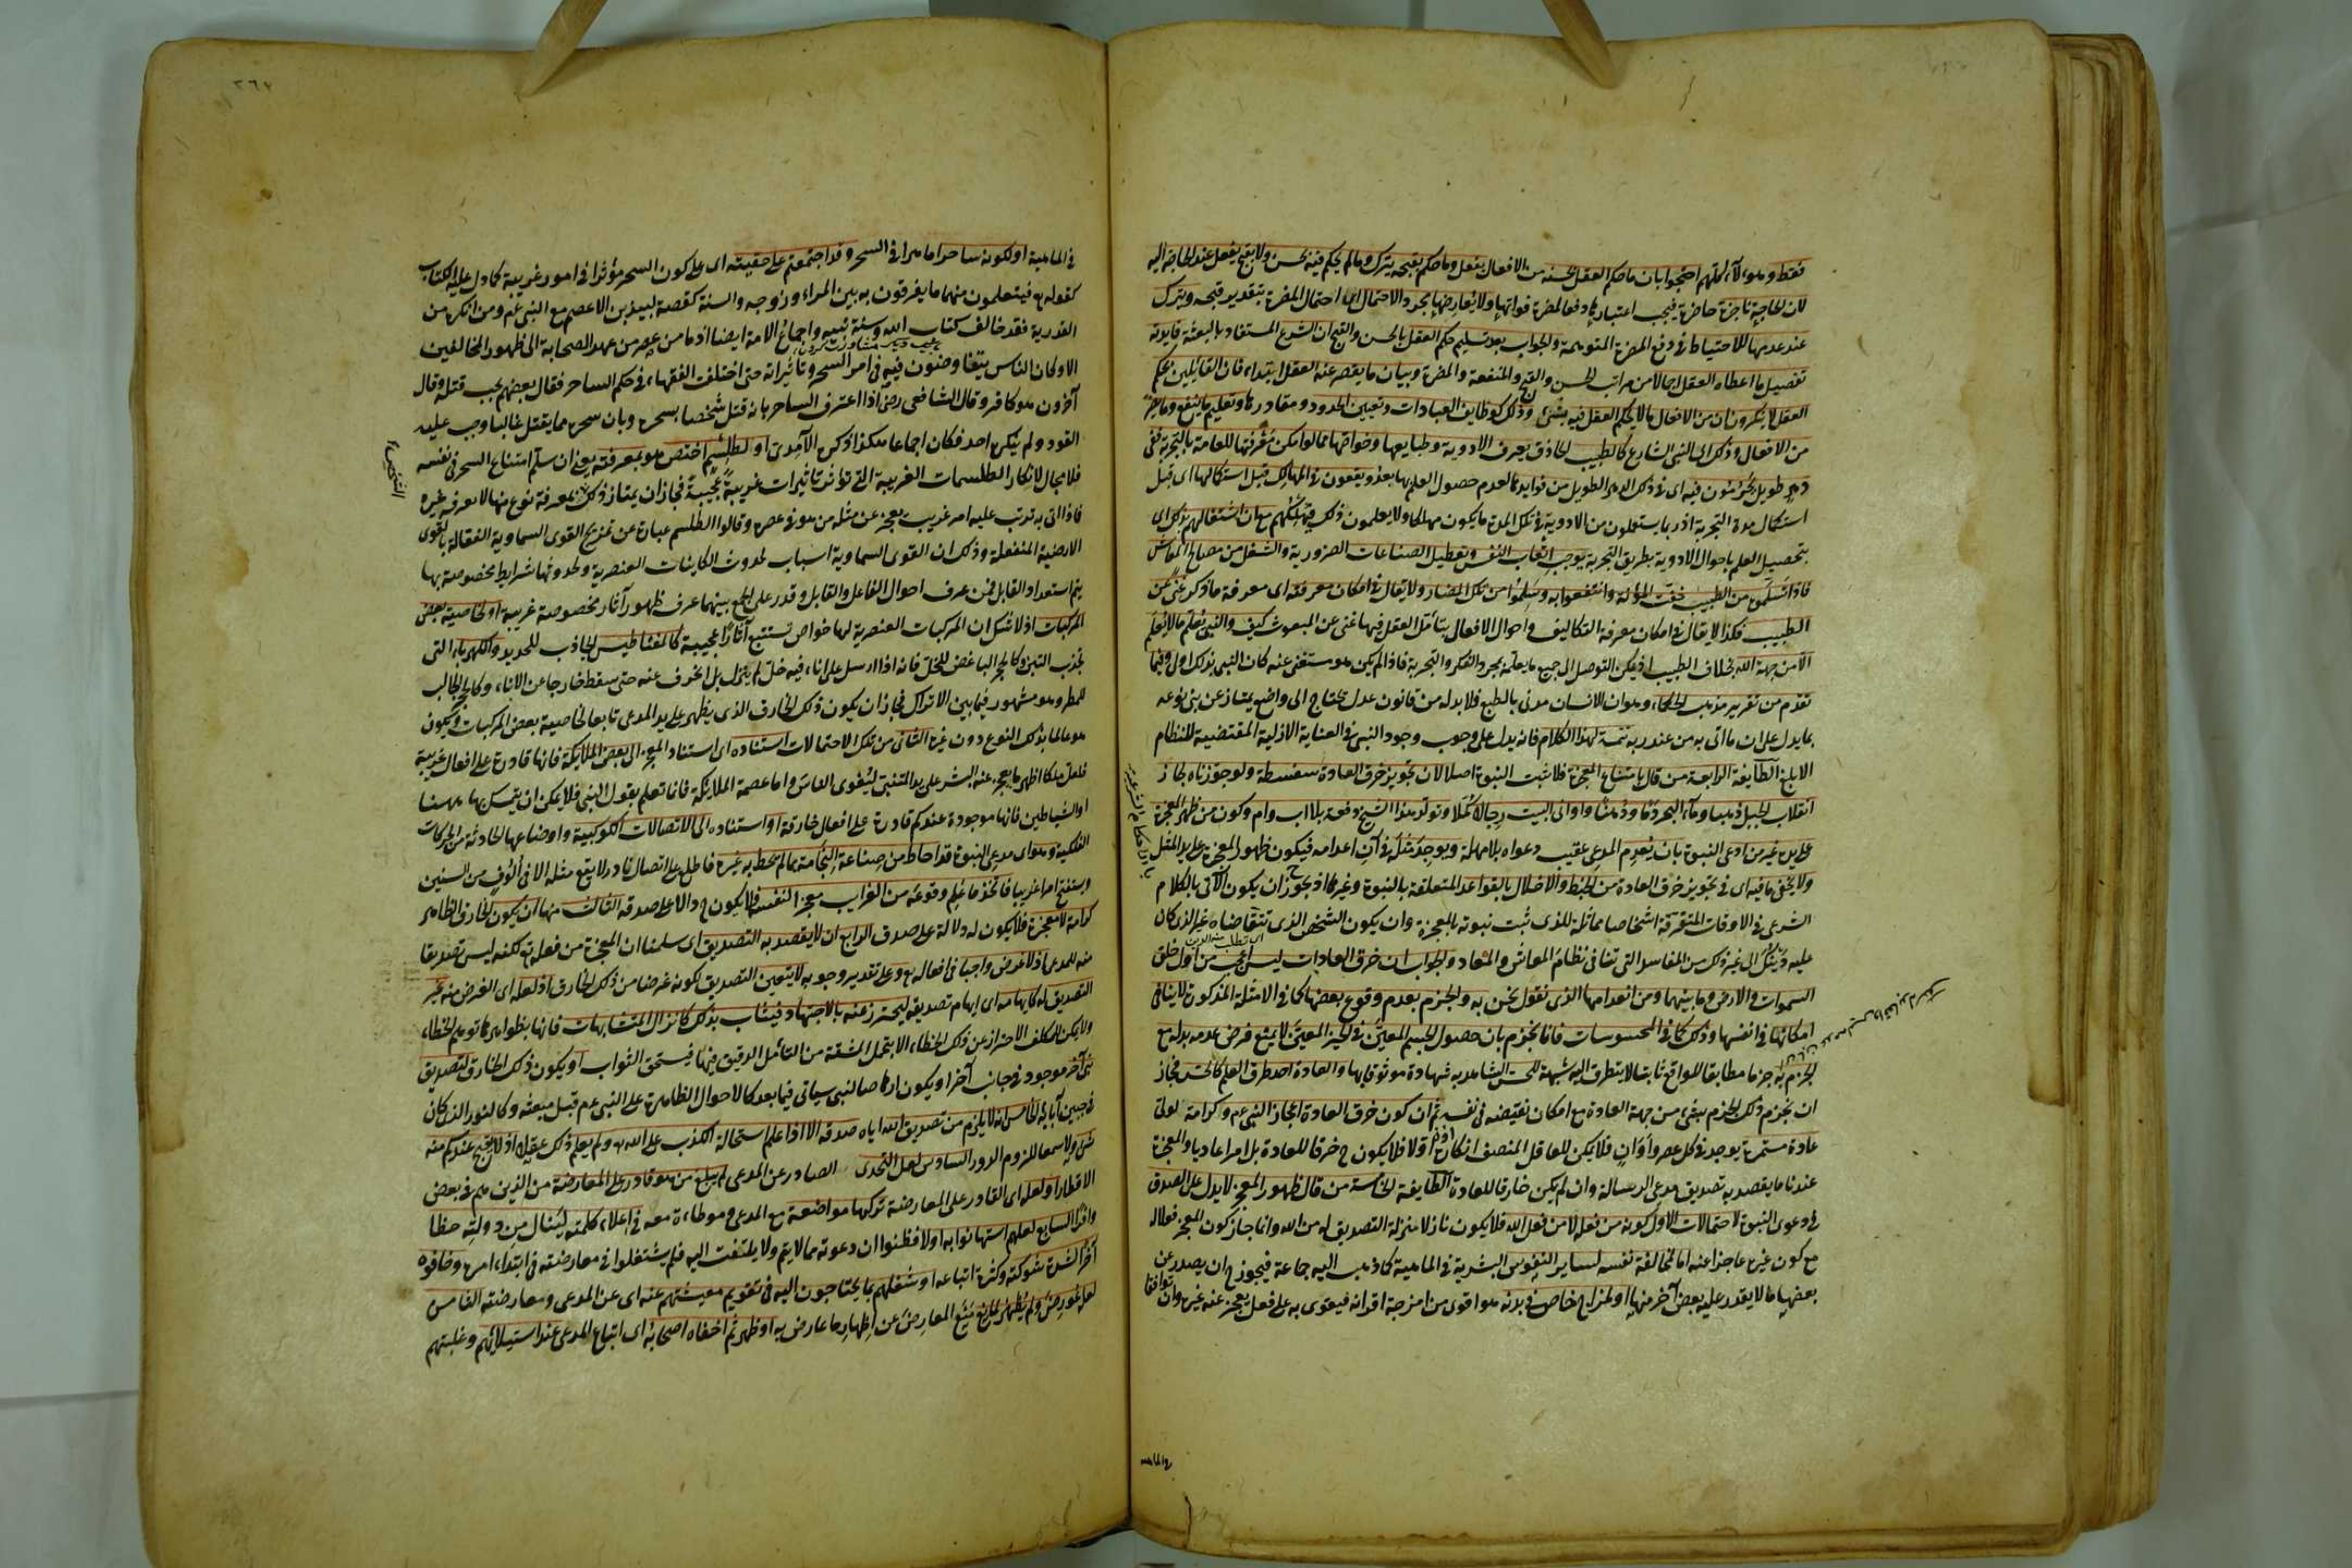 فقط وهولاء كلهم احتجوا بان ما حكم العقل بحسنه من الافعال يفعل وما حكم بقبحه يترك وما لم يحكم فيه بحسن ولا بقبح يفعل عند الحاجة اليه
لان الحاجة ناجزة حاضرة فيجب اعتبارها دفعا لمضرة فواتها ولا يعارضها مجرد الاحتمال اى احتمال المضرة بتقدير قبحه ويترك
عند عدمها للاحتياط فى دفع المضرة المتوهمة والجواب بعد تسليم حكم العقل بالحسن والقبح ان الشرع المستفاد بالبعثة فايدته
تفصيل ما اعطاه العقل اجمالا من مراتب الحسن والقبح والمنفعة والمضرة وبيان ما يقصر عنه العقل ابتداء فان القائلين بحكم
العقل لا ينكرون ان من الافعال ما لا يحكم العقل فيه بشئ وذلك كوظايف العبادات وتعيين الحدود ومقاديرها وتعليم ما ينفع وما يضر
من الافعال وذلك اى النبى الشارع كالطبيب الحاذق يعرف الادوية وطبايعها وخواصها مما لو امكن معرفتها للعامة بالتجربة ففى
دهر طويل يحرمون فيه اى فى ذلك الدهر الطويل من فوايدها لعدم حصول العلم بها بعد ويقعون فى المهالك قبل استكمالها اى قبل
استكمال مدة التجربة اذ ربما يستعملون من الادوية فى تلك المدة ما يكون مهلكا ولا يعلمون ذلك فيهلكهم مع ان اشتغالهم بذلك اى
بتحصيل العلم باحوال الادوية بطريق التجربة يوجب اتعاب النفس وتعطيل الصناعات الضرورية والشغل من مصالح المعاش
فاذا تسلموه من الطبيب خفت المؤنة وانتفعوا به وسلموا من تلك المضار ولا يقال فى امكان معرفته اى معرفة ما ذكر غنى عن
الطبيب فكذا لا يقال فى امكان معرفة التكاليف واحوال الافعال بتأمل العقل فيها غنى عن المبعوث كيف والنبى يعلم ما لا يعلم
الا من جهة الله بخلاف الطبيب اذ يمكن التوصل الى جميع ما يعلمه بمجرد الفكر والتجربة فاذا لم يكن هو مستغنى عنه كان النبى بذلك اولى وفيما
تقدم من تقرير مذهب الحكماء وهو ان الانسان مدنى بالطبع فلا بد له من قانون عدل يحتاج الى واضع يمتاز عن بنى نوعه
بما يدل على ان ما اتى به من عند ربه تتمة لهذا الكلام فانه يدل على وجوب وجود النبى فى العناية الازلية المقتضية للنظام
الابلغ الطايفة الرابعة من قال بامتناع المعجزة فلا تثبت النبوة اصلا لان تجويز خرق العادة سفسطة ولو جوزناه لجاز
انقلاب الجبل ذهبا وماء البحر دما ودهنا واوانى البيت رجالا كملا وتولد هذا الشيخ دفعة بلا اب وام وكون من ظهر المعجزة
على يده غير من ادعى النبوة بان يعدم المدعى عقيب دعواه بلا مهلة ويوجد مثله فى آن اعدامه فيكون ظهور المعجزة على يد المثل
ولا يخفى ما فيه اى فى تجويز خرق العادة من الخبط والاخلال بالقواعد المتعلقة بالنبوة وغيرها اذ يجوز ان يكون الآتى بالكلام
الشرعى فى الاوقات المتفرقة اشخاصا مماثلة للذى ثبت نبوته بالمعجزة وان يكون الشخص الذى تتقاضاه غير الذى كان
عليه دينك الى غير ذلك من المفاسد التى تنافى نظام المعاش والمعاد والجواب ان خرق العادات ليس اعجب من اول خلق
السموات والارض وما بينهما ومن انعدامها الذى نقول نحن به والجزم بعدم وقوع بعضها كما فى الامثلة المذكورة لا ينافى
امكانها فى انفسها وذلك كما فى المحسوسات فانا نجزم بان حصول الجسم المعين فى الحيز المعين لا يمنع فرض عدمه بدله مع
الجزم به جزما مطابقا للواقع ثابتا لا يتطرق اليه شبهة للحس الشاهد به شهادة موثوقا بها والعادة احد طرق العلم كالحس فجاز
ان نجزم ذلك الجزم بشئ من جهة العادة مع امكان نقيضه فى نفسه ثم ان كون خرق العادة اعجاز النبى عم وكرامة لولى
عادة مستمرة يوجد فى كل عصر واوان فلا يمكن للعاقل المنصف انكاره اولا فلا يكون ح خرقا للعادة بل امرا عاديا والمعجزة
عندنا ما يقصد به تصديق مدعى الرسالة وان لم يكن خارقا للعادة الطايفة الخامسة من قال ظهور المعجز لا يدل على الصدق
فى دعوى النبوة لاحتمالات الاول كونه من فعله لا من فعل الله فلا يكون نازلا منزلة التصديق له من الله وانما جاز كون المعجز فعلا له
مع كون غيره عاجزا عنه اما لمخالفة نفسه لساير النفوس البشرية فى الماهية كما ذهب اليه جماعة فيجوز ح ان يصدر عن
بعضها ما لا يقدر عليه بعض آخر منها او لمزاج خاص فى بدنه هو اقوى من امزجة اقرانه فيقوى به على فعل يعجز عنه غيره وان توافقا
فى الماهية
٢٦٧
فى الماهية او لكونه ساحرا ماهرا فى السحر وقد اجتمعتم على حقيته اى على كون السحر مؤثرا فى امور غريبة كما دل عليه الكتاب
كقوله تع فيتعلمون منهما ما يفرقون به بين المرء وزوجه والسنة كقصة لبيد بن الاعصم مع النبى عم ومن انكره من
القدرية فقد خالف كتاب الله وسنة نبيه واجماع الامة ايضا اذ ما من عصر من عهد الصحابة الى ظهور المخالفين
الا وكان الناس يتفاوضون فيه فى امر السحر وتأثيراته حتى اختلفت الفقهاء فى حكم الساحر فقال بعضهم يجب قتله وقال
آخرون هو كافر وقال الشافعى رض اذا اعترف الساحر بانه قتل شخصا بسحره وبان سحره مما يقتل غالبا وجب عليه
القود ولم ينكره احد فكان اجماعا هكذا ذكره الآمدى او لطلسم اختص هو بمعرفته يعنى ان سلم امتناع السحر فى نفسه
فلا مجال لانكار الطلسمات الغريبة التى تؤثر تأثيرات غريبة عجيبة فجاز ان يمتاز ذلك بمعرفة نوع منها لا يعرفه غيره
فاذا اتى به ترتب عليه امر غريب يعجز عن مثله من هو فى عصره وقالوا الطلسم عبارة عن تمزيج القوى السماوية الفعالة بالقوى
الارضية المنفعلة وذلك ان القوى السماوية اسباب لحدوث الكاينات العنصرية ولحدوثها شرايط مخصوصة بها
يتم استعداد القابل فمن عرف احوال الفاعل والقابل وقدر على الجمع بينهما عرف ظهور آثار مخصوصة غريبة او لخاصية بعض
المركبات اذ لا شك ان المركبات العنصرية لها خواص تستتبع آثارا عجيبة كالمغناطيس الجاذب للحديد والكهرباء التى
تجذب التبن وكالحجر الباغض للخل فانه اذا ارسل على اناء فيه خل لم ينزل بل انحرف عنه حتى سقط خارجا عن الاناء وكالحجر الجالب
للمطر وهو مشهور فيما بين الاتراك فجاز ان يكون ذلك الخارق الذى يظهر على يد المدعى تابعا لخاصية بعض المركبات ويكون
هو عالما بذلك النوع دون غيره الثانى من تلك الاحتمالات استناده اى استناد المعجز الى بعض الملائكة فانها قادرة على افعال غريبة
فلعل ملكا اظهر ما يعجز عنه البشر على يد المتنبى ليغوى الناس واما عصمة الملائكة فانا نعلم بقول النبى فلا يمكن ان يتمسك بها ههنا
او الشياطين فانها موجودة عندكم قادرة على افعال خارقة او استناده الى الاتصالات الكوكبية واوضاعها الحادثة من الحركات
الفلكية وهو اى مدعى النبوة قد احاط من صناعة النجامة بما لم يحط به غيره فاطلع على اتصال نادر لا يقع مثله الا فى ألوف من السنين
ويستتبع امرا غريبا فاتخذ ما علم وقوعه من الغرايب معجزا لنفسه فلا يكون ح دالا على صدقه الثالث منها ان يكون الخارق الظاهر
كرامة لا معجزة فلا يكون له دلالة على صدقه الرابع ان لا يقصد به التصديق اى سلمنا ان المعجزة من فعله تع لكنه ليس تصديقا
منه للمدعى اذ لا غرض واجبا فى افعاله تع وعلى تقدير وجوبه لا يتعين التصديق لكونه غرضا من ذلك الخارق اذ لعله اى الغرض منه غير
التصديق له كايهامه اى ايهام تصديقه ليحترز عنه بالاجتهاد فيثاب بذلك كانزال المتشابهات فانها بظواهرها توهم الخطاء
ولا يمكن للمكلف الاحتراز عن ذلك الخطاء الا بتحمل المشقة من التأمل الدقيق فيها فيستحق الثواب او يكون ذلك الخارق لتصديق
نبى آخر موجود فى جانب آخر او يكون ارهاصا لنبى سياتى فيما بعد كالاحوال الظاهرة على النبى عم قبل مبعثه وكالنور الذى كان
فى جبين آبائه الخامس انه لا يلزم من تصديق الله اياه صدقه الا اذا علم استحالة الكذب على الله تع ولم يعلم ذلك عقلا اذ لا يقبح عندكم منه
شئ ولا سمعا للزوم الدور السادس لعل التحدى الصادر عن المدعى لم يبلغ من هو قادر على المعارضة من الذين هم فى بعض
الاقطار او لعله اى القادر على المعارضة تركها مواضعة مع المدعى وموطاءة معه فى اعلاء كلمته لينال من دولته حظا
وافرا السابع لعلهم استهانوا به اولا فظنوا ان دعوته مما لا يتم ولا يلتفت اليه فلم يشتغلوا فى معارضته فى ابتداء امره وخافوه
آخرا لشدة شوكته وكثرة اتباعه او شغلهم ما يحتاجون اليه فى تقويم معيشتهم عنه اى عن المدعى ومعارضته الثامن
لعله عورض ولم يظهر لمانع منع المعارض عن اظهار ما عارض به او ظهر ثم اخفاه اصحابه اى اتباع المدعى عند استيلائهم وغلبتهم